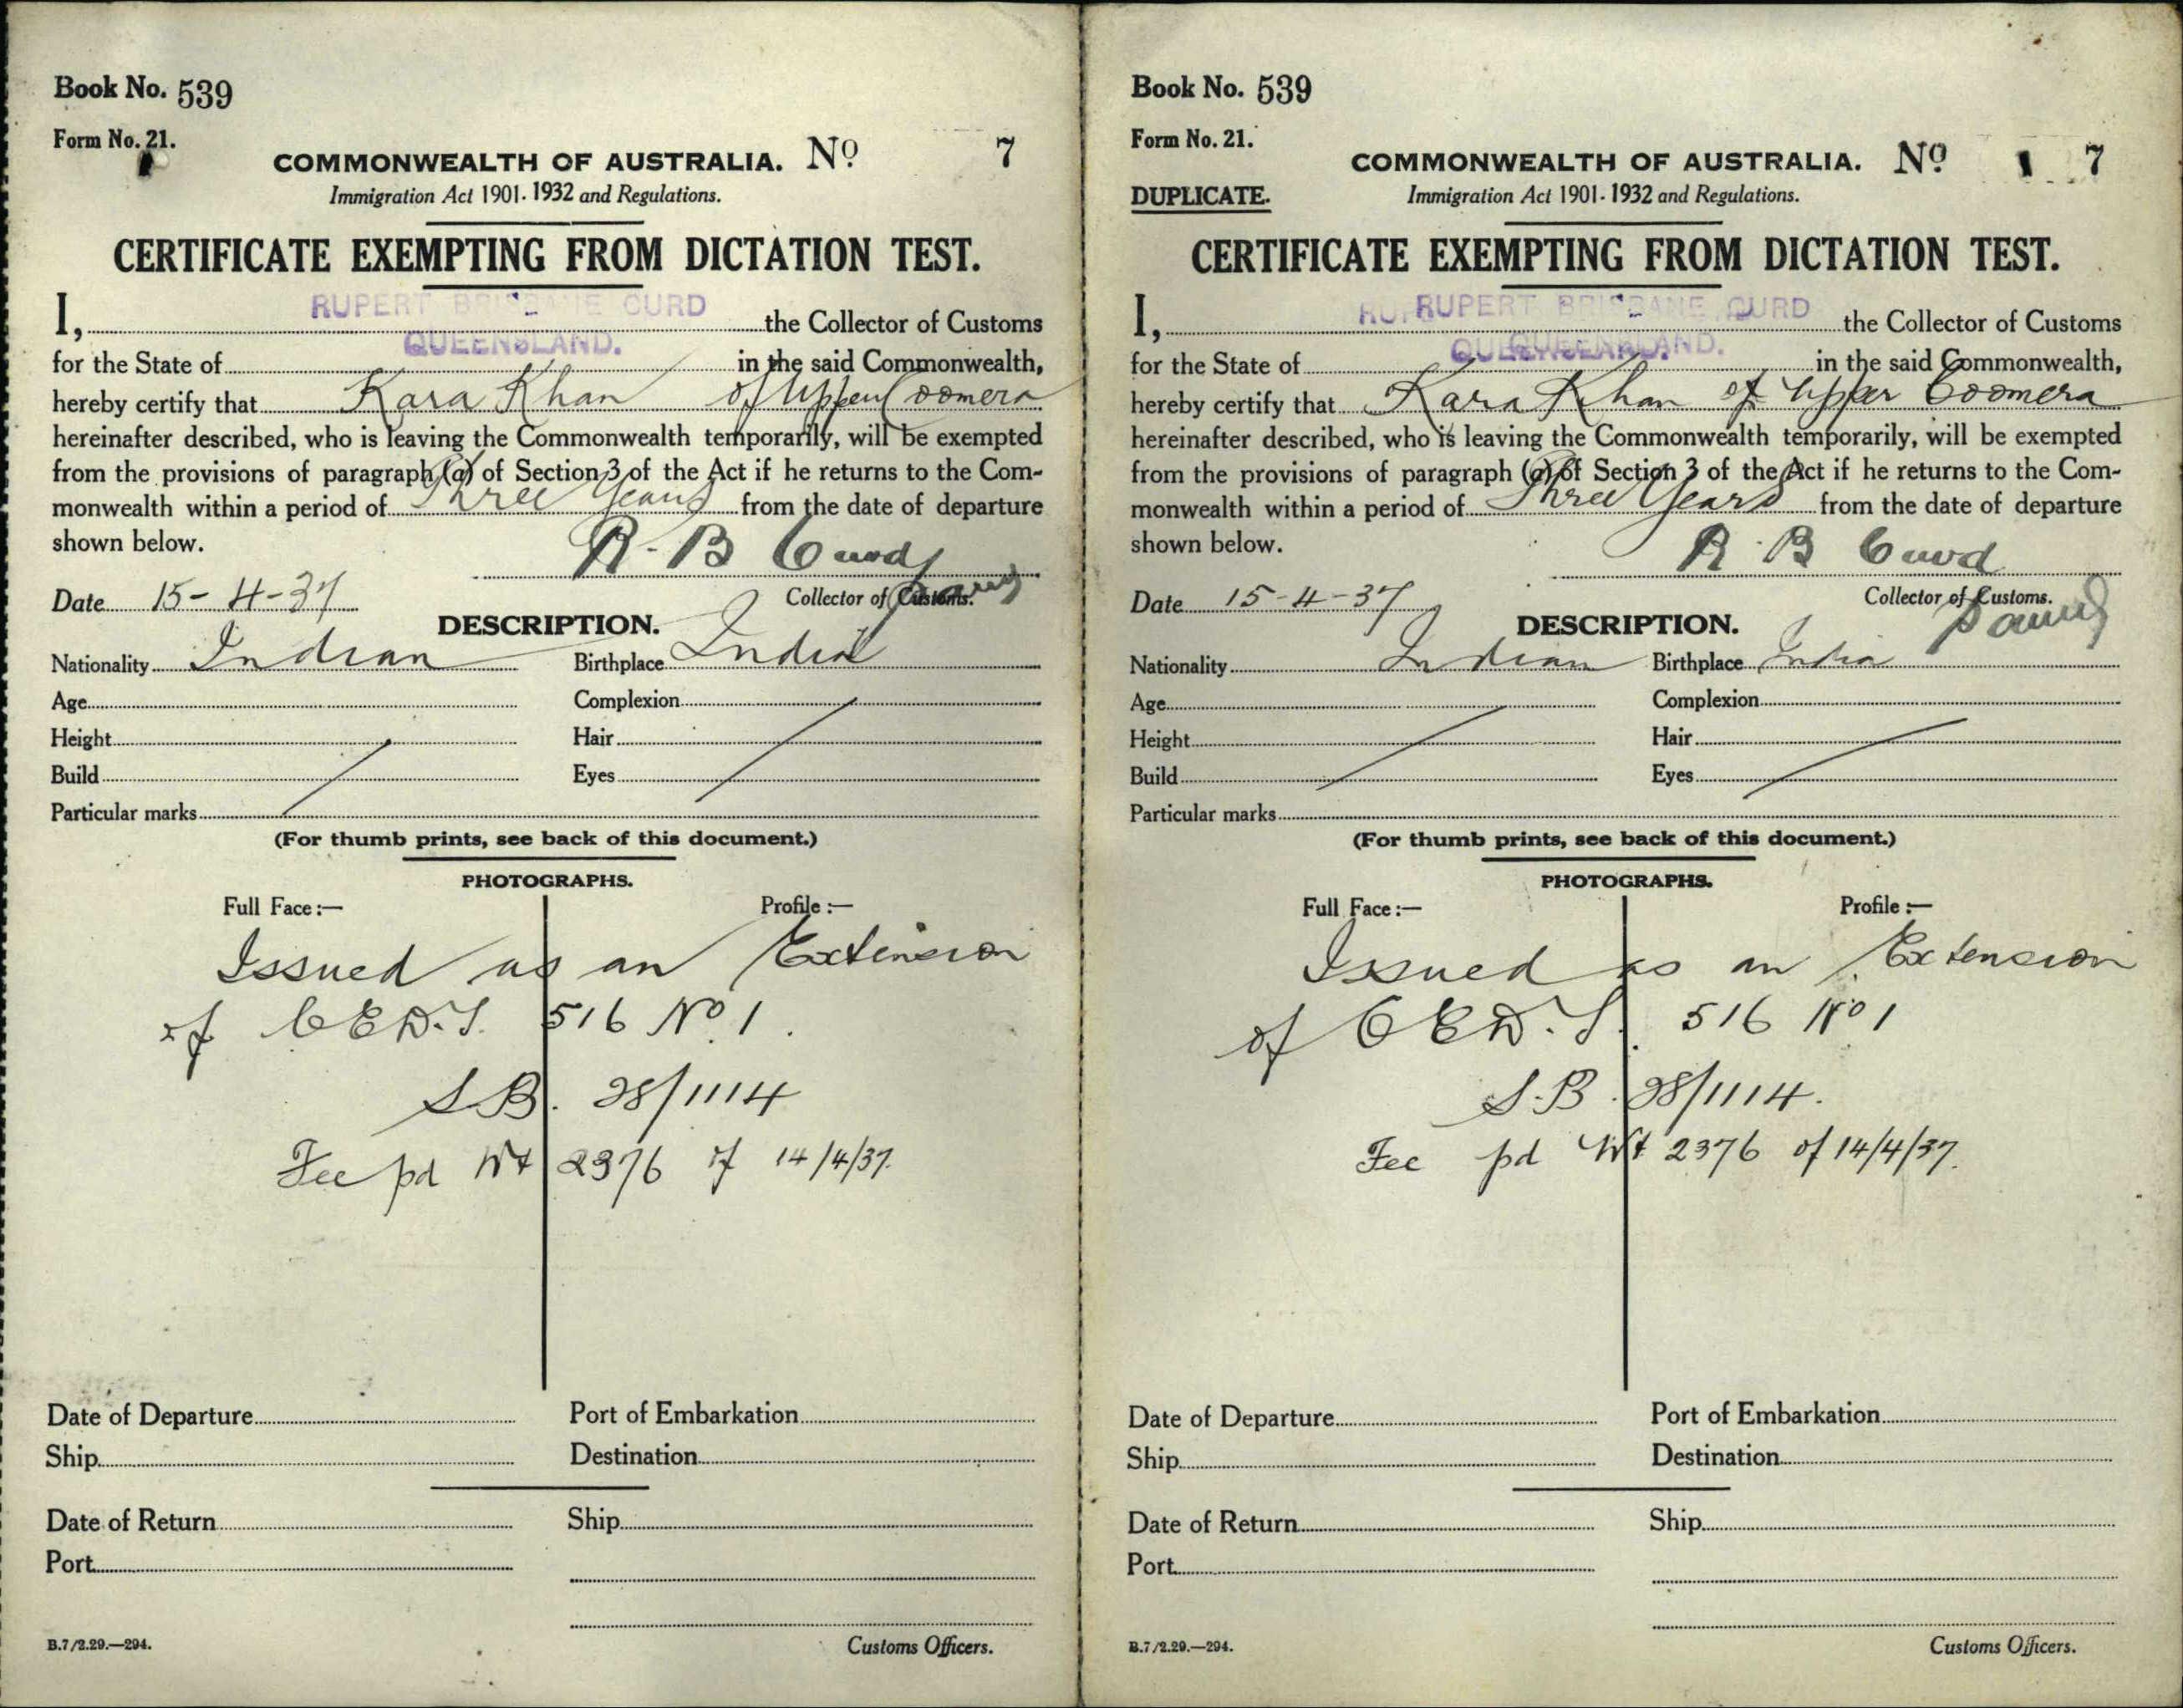 Book No. 539
Form No. 21.
COMMONWEALTH OF AUSTRALIA. No 7
Immigration Act 1901-1932 and Regulations.
CERTIFICATE EXEMPTING FROM DICTATION TEST.
RUPERT BRISBANE CURD
I, the Collector of Customs
QUEENSLAND.
for the State of in the said Commonwealth,
hereby certify that Kara Khan of Upper Coomera
hereinafter described, who is leaving the Commonwealth temporarily, will be exempted
from the provisions of paragraph (a) of Section 3 of the Act if he returns to the Com-
monwealth within a period of Three Years from the date of departure
shown below.
R. B Curd
Date 15-4-37 Collector of Customs.
DESCRIPTION.
Nationality Indian Birthplace India
Age Complexion
Height Hair
Build Eyes
Particular marks
(For thumb prints, see back of this document.)
PHOTOGRAPHS.
Full Face:— Profile:—
Issued as an Extension
of C E D.T. 516 No 1.
S.B. 38/1114
Fee pd Wt 2376 of 14/4/37.
Date of Departure Port of Embarkation
Ship Destination
Date of Return Ship
Port
B.7/2.29.—294. Customs Officers.
Book No. 539
Form No. 21.
COMMONWEALTH OF AUSTRALIA. No 7
DUPLICATE. Immigration Act 1901-1932 and Regulations.
CERTIFICATE EXEMPTING FROM DICTATION TEST.
RUPERT BRISBANE CURD
I, the Collector of Customs
QUEENSLAND.
for the State of in the said Commonwealth,
hereby certify that Kara Khan of Upper Coomera
hereinafter described, who is leaving the Commonwealth temporarily, will be exempted
from the provisions of paragraph (a) of Section 3 of the Act if he returns to the Com-
monwealth within a period of Three Years from the date of departure
shown below.
R. B Curd
Date 15-4-37 Collector of Customs.
DESCRIPTION.
Nationality Indian Birthplace India
Age Complexion
Height Hair
Build Eyes
Particular marks
(For thumb prints, see back of this document.)
PHOTOGRAPHS.
Full Face:— Profile:—
Issued as an Extension
of C E D.T. 516 No 1
S.B. 38/1114.
Fee pd Wt 2376 of 14/4/37.
Date of Departure Port of Embarkation
Ship Destination
Date of Return Ship
Port
B.7/2.29.—294. Customs Officers.